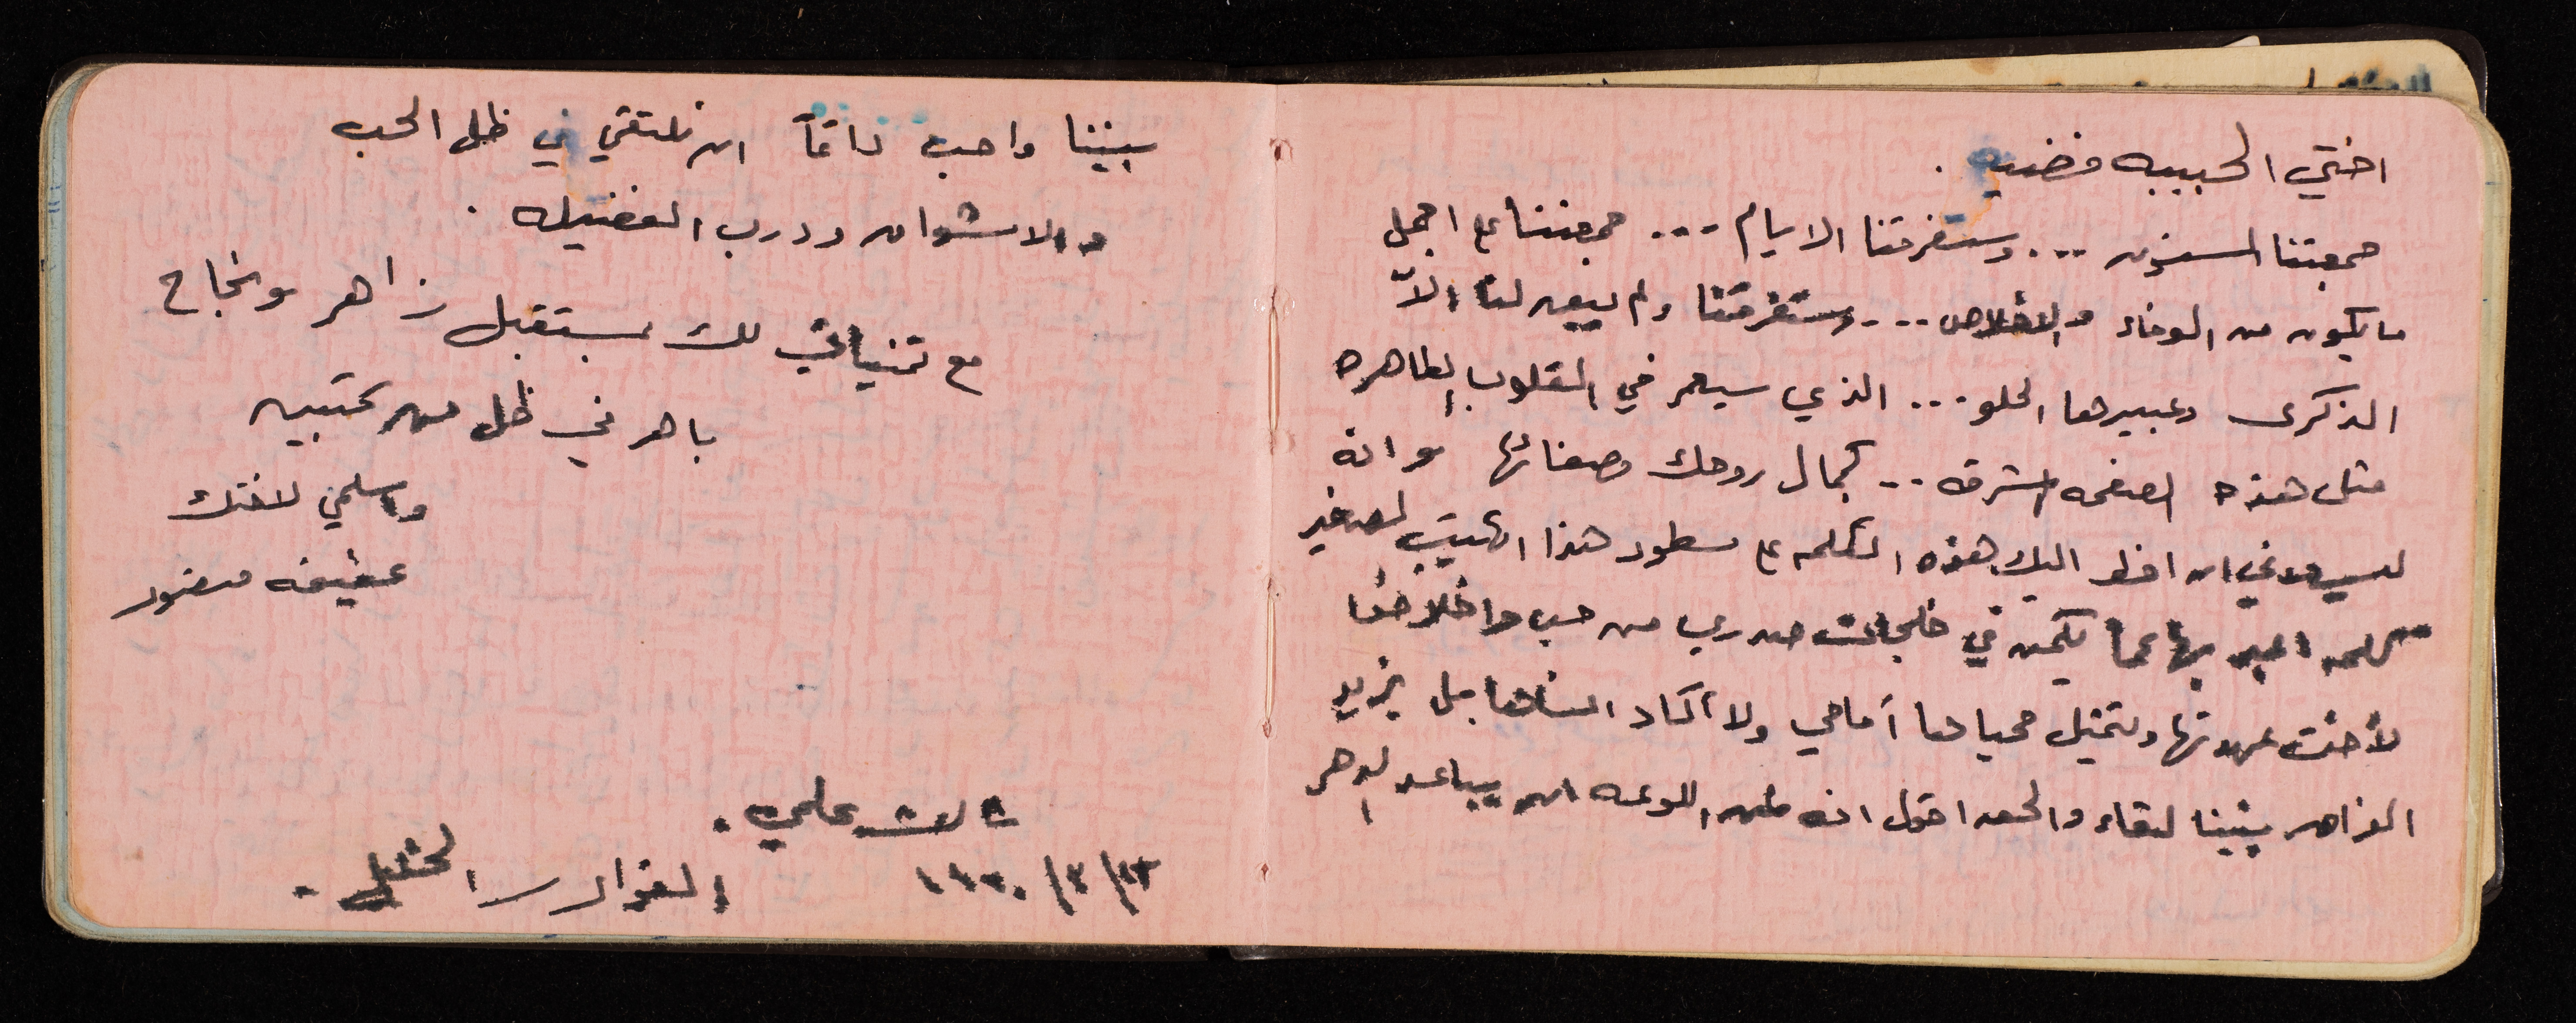 اختي الحبيبه فضيه .
جمعتنا السنون ... وستفرقنا الايام ... جمعتنا على اجمل
ما يكون من الوفاء والاخلاص ... وستفرقنا ولم يبق لنا الاّ
الذكرى وعبيرها الحلو ... الذي سيعمر في القلوب الطاهره
مثل هذه الصفحه المشرقه .. كجمال روحك وصفائها وانه
ليسعدني ان اخط اليك هذه الكلمه على سطور هذا الكتيب الصغير
كلمه اعبر بها عما يكمن في خلجات صدري من حب واخلاص
لأخت عهدتها وتمثيل محياها أمامي ولا أكاد انساها بل يزيد
بيننا لقاء والحق اقول انه من اللوعه ان يباعد الدهر
بيننا واحب دائماً ان نلتقي في ظل الحب
والاشواق ودرب الفضيله .
مع تمنياتي لك بمستقبل زاهر ونجاح
باهر في ظل من تحبيه
واسلمي لاختك
عفيفه منصور
ثالث علمي .
١٩٦٠/٣/٢٣